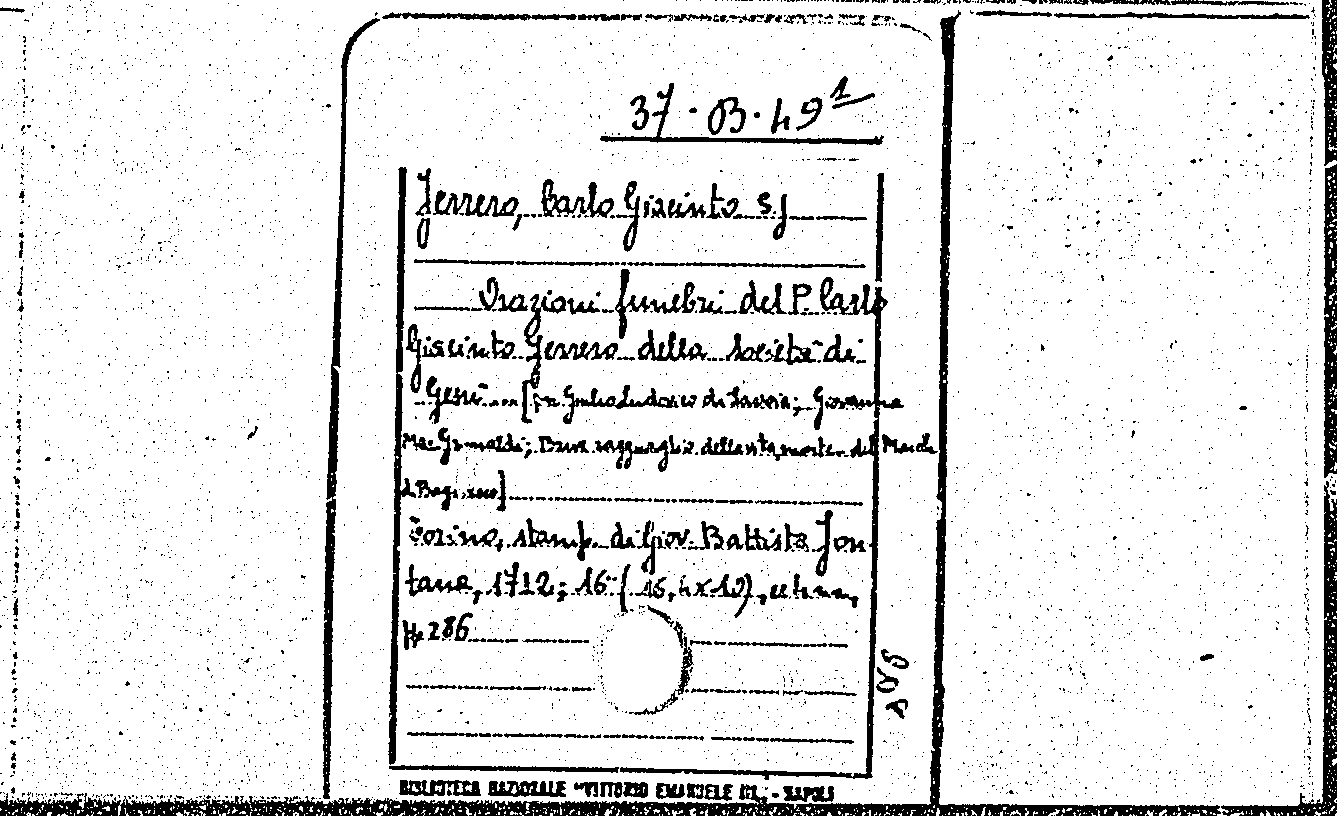 37.B.49¹
Ferrero, Carlo Giacinto S.J
Orazioni funebri del P. Carlo
Giacinto Ferrero della Società di
Gesù ... [in Giulio Ludovico di Savoia; Giovanna
Mar. Grimaldi; Breve ragguaglio della vita, morte del March.
d.
Torino, stamp. di Giov. Battista Fon-
tana, 1712; 16° (15,4x10),
pp 286
BIBLIOTECA NAZIONALE "VITTORIO EMANUELE III" - NAPOLI